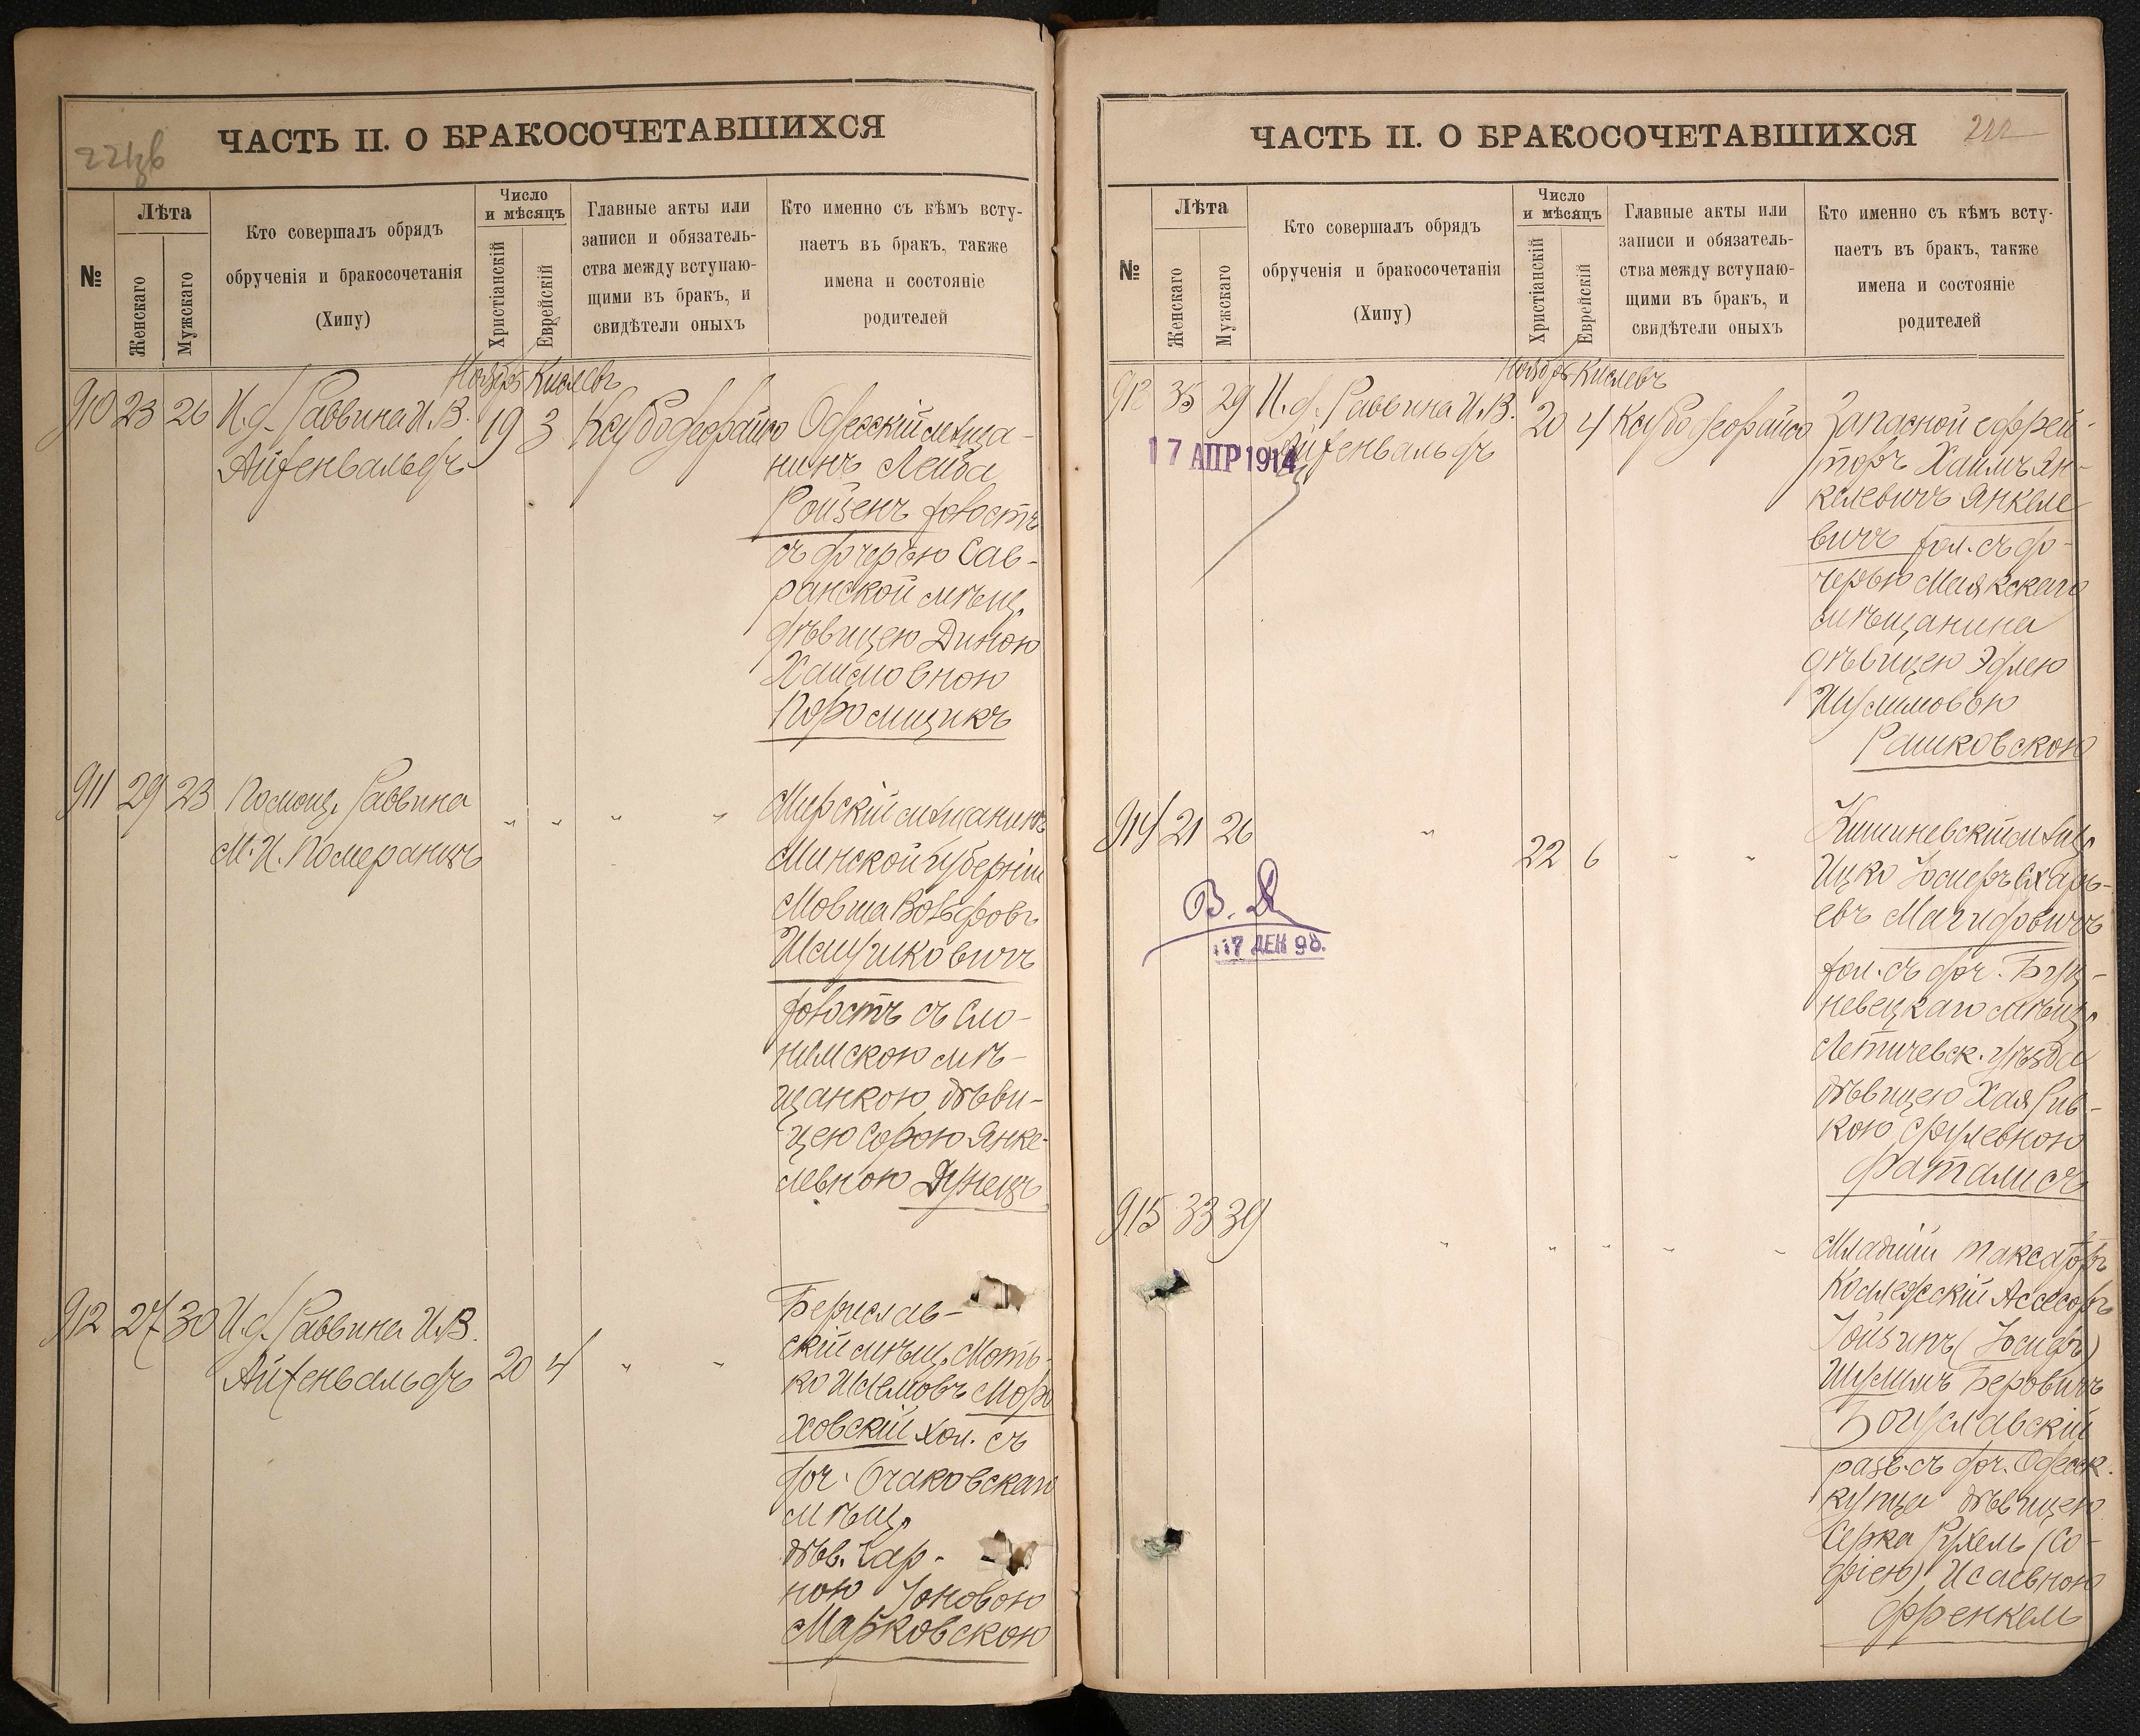 ЧАСТЬ II. О БРАКОСОЧЕТАВШИХСЯ
№
Лѣта
Женскаго
Мужскаго
Кто совершалъ обрядъ
обрученія и бракосочетанія
(Хипу)
Число
и мѣсяцъ
Христіанскій
Еврейскій
Главные акты или
записи и обязатель-
ства между вступаю-
щими въ бракъ, и
свидѣтели оныхъ
Кто именно съ кѣмъ всту-
паетъ въ бракъ, также
имена и состояніе
родителей
Ноябрь Кислевъ
910 23 26 И.д. Раввина И.В.
Айхенвальдъ
19 3
Одесскій мѣща-
нинъ Лейба
Ройзенъ холостъ
съ дочерью Сав-
ранской мѣщ.
дѣвицею Диною
Хаимовною
911 29 23 Помощ. Раввина
М.И. Померанцъ
„ „ „ „
Мирскій мѣщанинъ
Минской губерніи
Мовша Вольфовъ
Ицушковичъ
холостъ съ Сло-
нимскою мѣ-
щанкою дѣви-
цею Сорою Янке-
левною
912 27 30 И.д. Раввина И.В.
Айхенвальдъ
20 4 „ „
Берислав-
скій мѣщ. Моть-
ко
ховскій хол. съ
доч. Очаковскаго
мѣщ.
дѣв. Чар-
ною Іоновою
Марковскою
ЧАСТЬ II. О БРАКОСОЧЕТАВШИХСЯ
№
Лѣта
Женскаго
Мужскаго
Кто совершалъ обрядъ
обрученія и бракосочетанія
(Хипу)
Число
и мѣсяцъ
Христіанскій
Еврейскій
Главные акты или
записи и обязатель-
ства между вступаю-
щими въ бракъ, и
свидѣтели оныхъ
Кто именно съ кѣмъ всту-
паетъ въ бракъ, также
имена и состояніе
родителей
Ноябрь Кислевъ
35 29 И.д. Раввина И.В.
Айхенвальдъ
17 АПР 1914
20 4
Запасной ефрей-
торъ Хаимъ Ян-
келевичъ Янкеле
вичъ хол. съ до-
черью Маякскаго
мѣщанина
дѣвицею Эдлею
Шулимовою
Рашковскою
914 21 26 „ 22 6 „ „
В. Д
17 ДЕК 98.
Кишиневскій мѣщ.
Ицко
евъ Магидовичъ
хол. съ доч. Буц-
невецкаго мѣщ.
Летичевск. уѣзда
дѣвицею Хая Рив-
кою Срулевною
Фаталисъ
915 33 39 „ „ „ „ „
Младшій таксаторъ
Коллежскій Ассесоръ
Іойзипъ (Іосифъ)
Шулимъ Беровичъ
Богуславскій
разв. съ доч. Одесск.
купца дѣвицею
Серка Рухель (Со-
фіею) Исаевною
Френкель